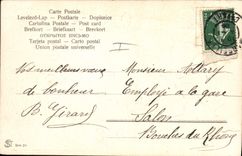 Carte Postale
Levelező-Lap - Postkarte - Dopisnice
Cartolina Postale - Post card
Brefkort - Briefkaart - Brevkort
Tarjeta postal - Carto postal
Union postale universelle
Vos meilleurs vœux
de bonheur
B. Girard
Monsieur Nottary
Employé à la gare
Salon
Bouches du Rhône